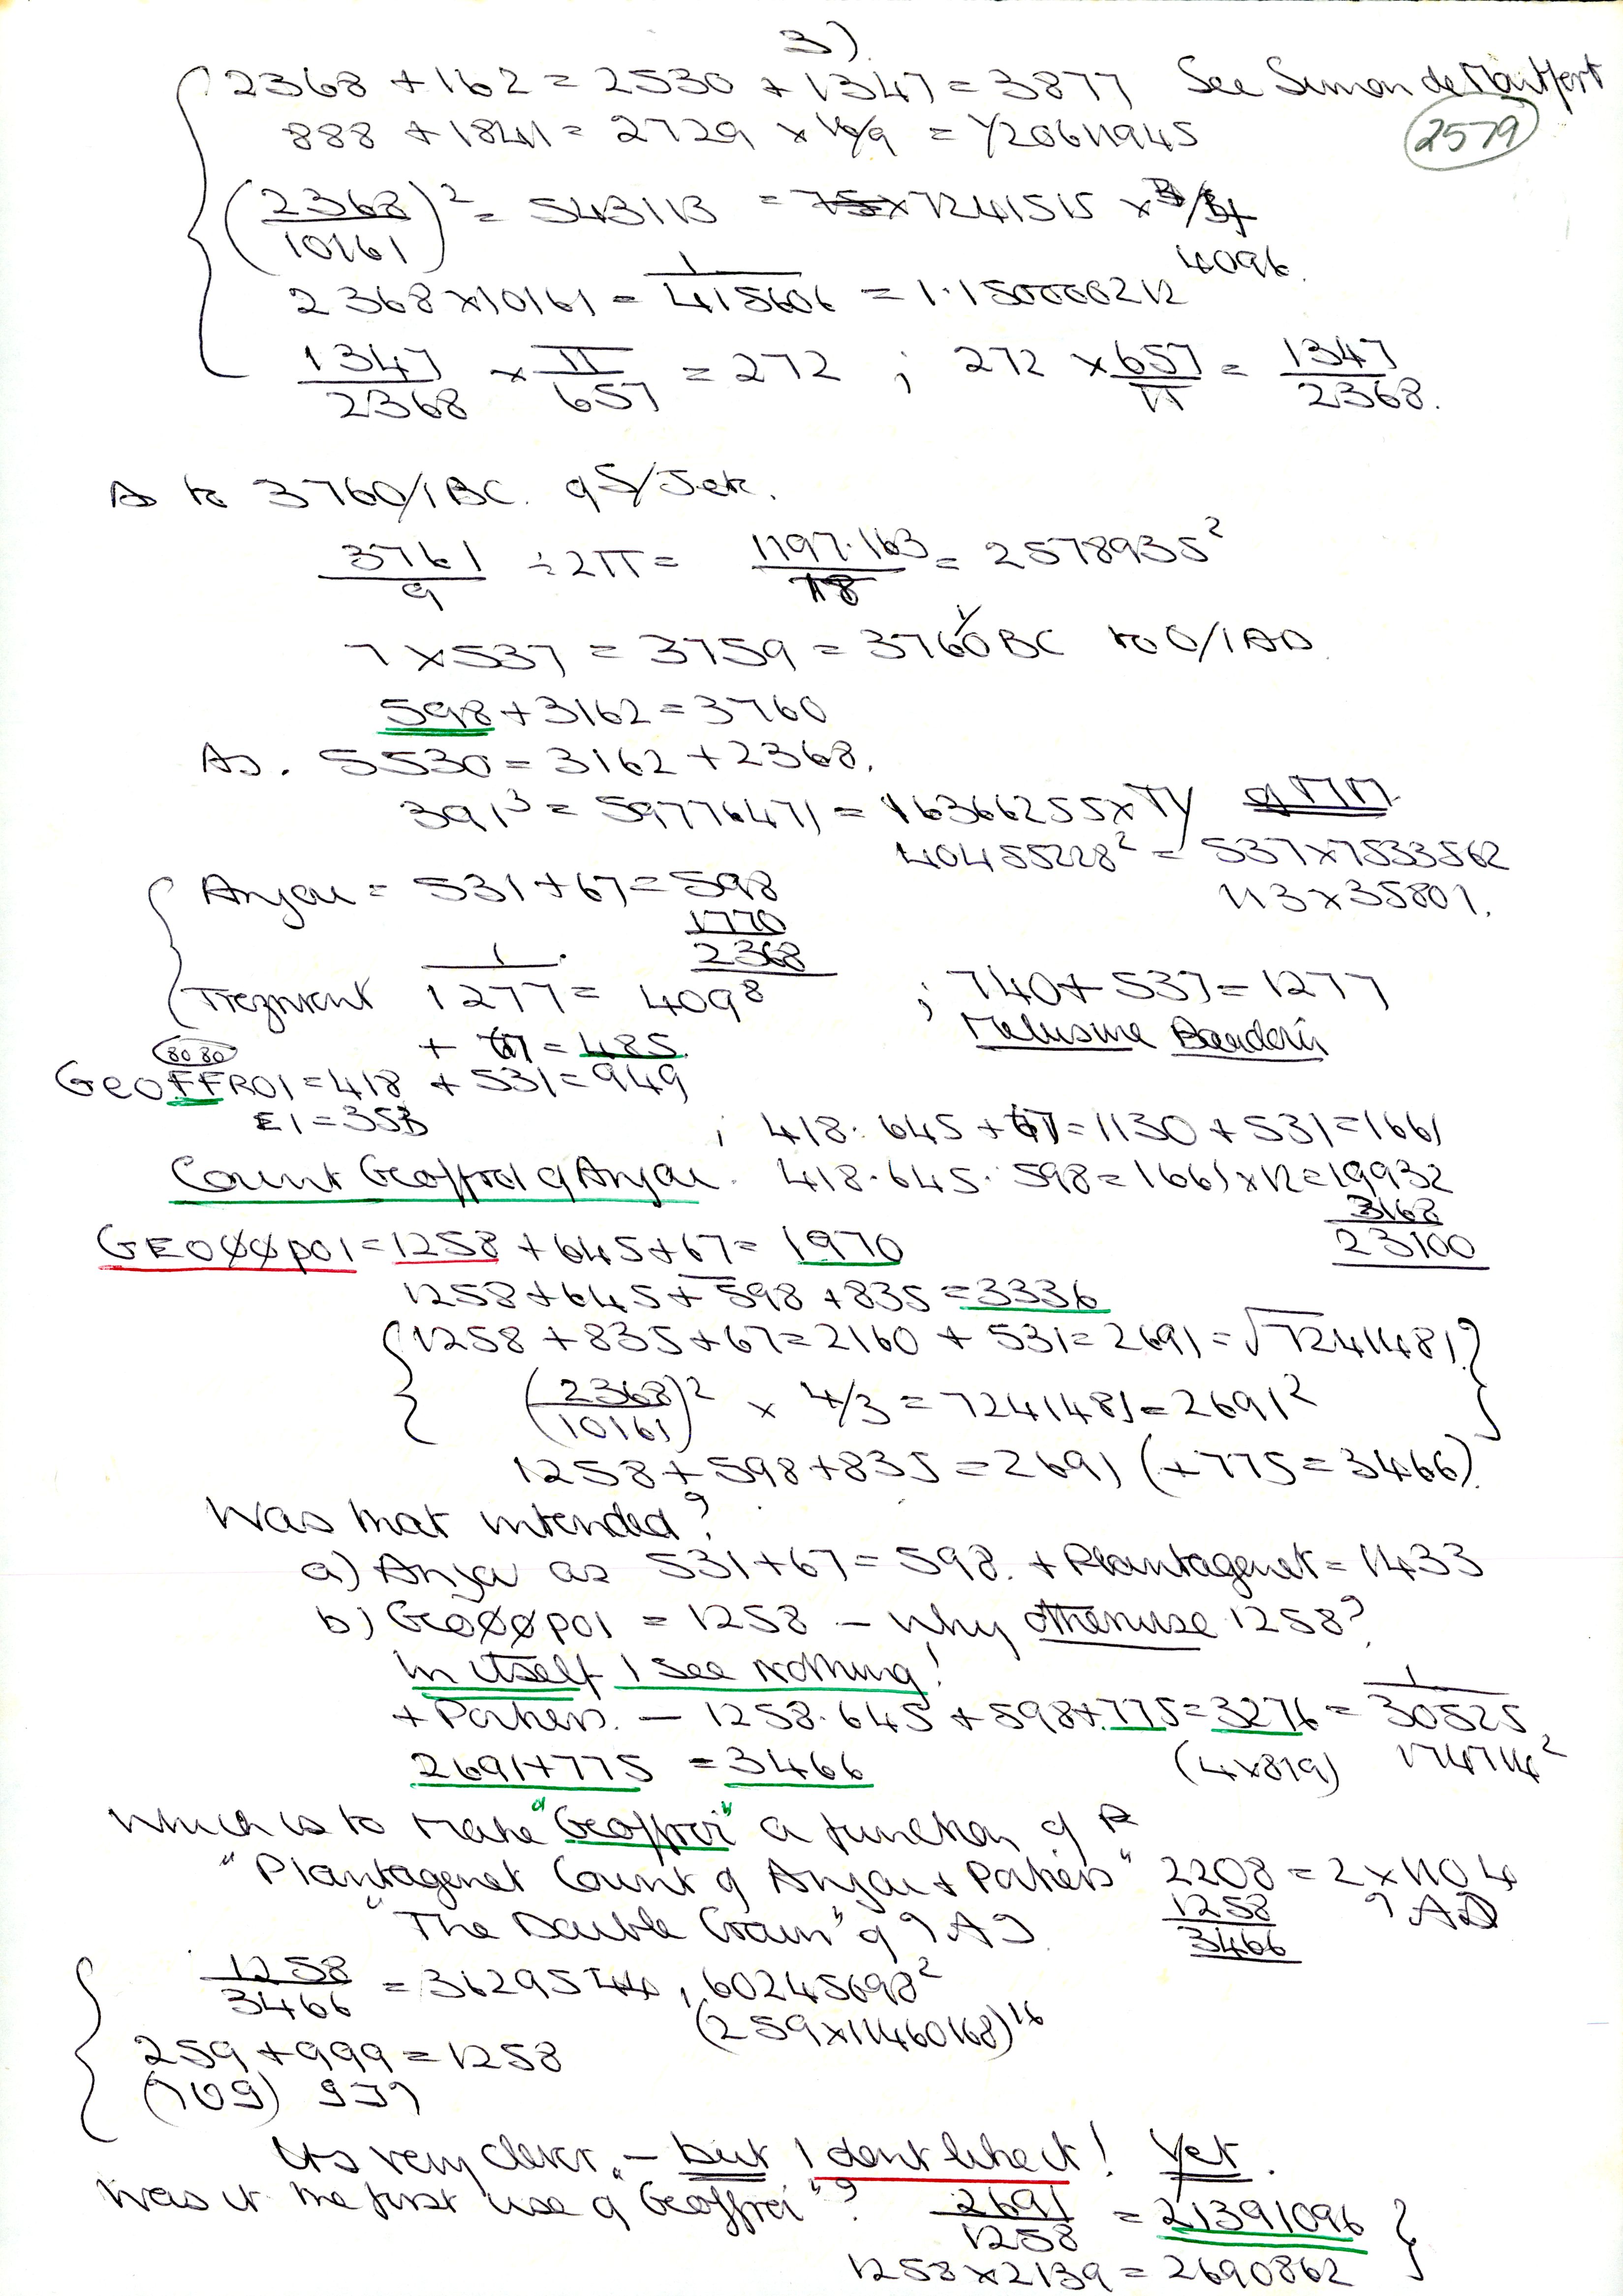 3)
2368 + 162 = 2530 + 1347 = 3877 See Simon de Montfort
2579
888 + 1841 = 2729 × 10/9 = 1/20611945
(2368/10161)² = 543113 = 75 × 7241515 × 3/4
4096.
2368 × 10161 = 1/415606 = 1.150000212
1347/2368 × π/657 = 272 ; 272 × 657/π = 1347/2368.
As to 3760/1 BC. 95/Jer.
3761/9 ÷ 2π = 1197.163/18 = 2578935²
7 × 537 = 3759 = 3760/1 BC to 0/1 AD
598 + 3162 = 3760
As. 5530 = 3162 + 2368.
391³ = 59776471 = 16366255 × π/
40455228² = 537 × 7533562
113 × 35801.
Anjou = 531 + 67 = 598
1770
2368
1/1277 = 409⁸ ; 740 + 537 = 1277
+ 67 = 485 Melusine
8080
GEOFFROI = 418 + 531 = 949
EI = 353
; 418. 645 + 67 = 1130 + 531 = 1661
Count Geoffroi of Anjou. 418.645. 598 = 1661 × 12 = 19932
3168
23100
GEOφφροι = 1258 + 645 + 67 = 1970
1258 + 645 + 598 + 835 = 3336
1258 + 835 + 67 = 2160 + 531 = 2691 = √7241481?
(2368/10161)² × 4/3 = 7241481 = 2691²
1258 + 598 + 835 = 2691 (+775 = 3466)
Was that intended?
a) Anjou as 531 + 67 = 598. + Plantagenet = 1433
b) Geoφφροι = 1258 – Why otherwise 1258?
In itself I see nothing!
+ Poitiers. – 1258.645 + 598 + 775 = 3276 = 1/30525
2691 + 775 = 3466 (4×819) 174714²
Which is to make "Geoffroi" a function of
"Plantagenet Count of Anjou + Poitiers" 2208 = 2 × 1104
1258 ? AD
3466
"The Double Crown" of
1258/3466 = 3629544, 60245698²
(259 × 11460168)¹⁶
259 + 999 = 1258
Its very clever – but I dont like it! Yet.
Was it the first use of "Geoffroi"? 2691/1258 = 21391096
1258 × 2139 = 2690862